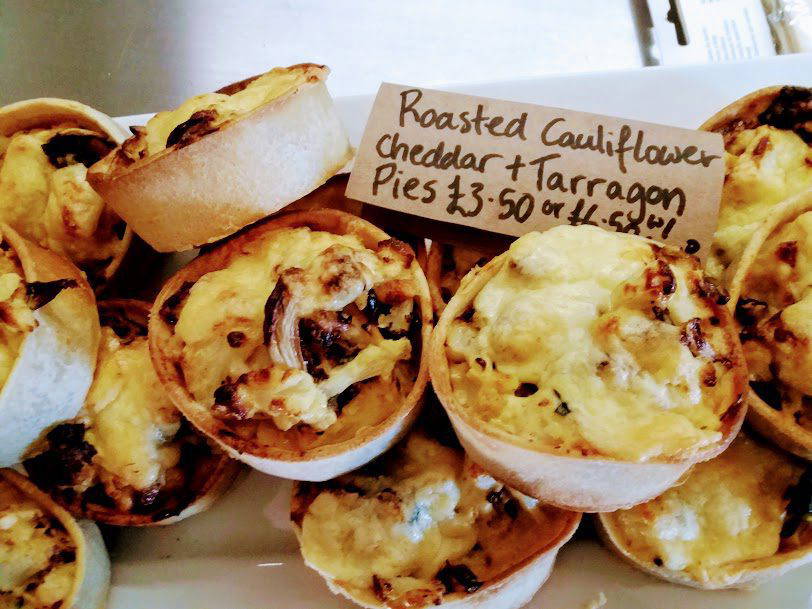 Roasted Cauliflower
cheddar + Tarragon
Pies £3.50 or £6.50 w/